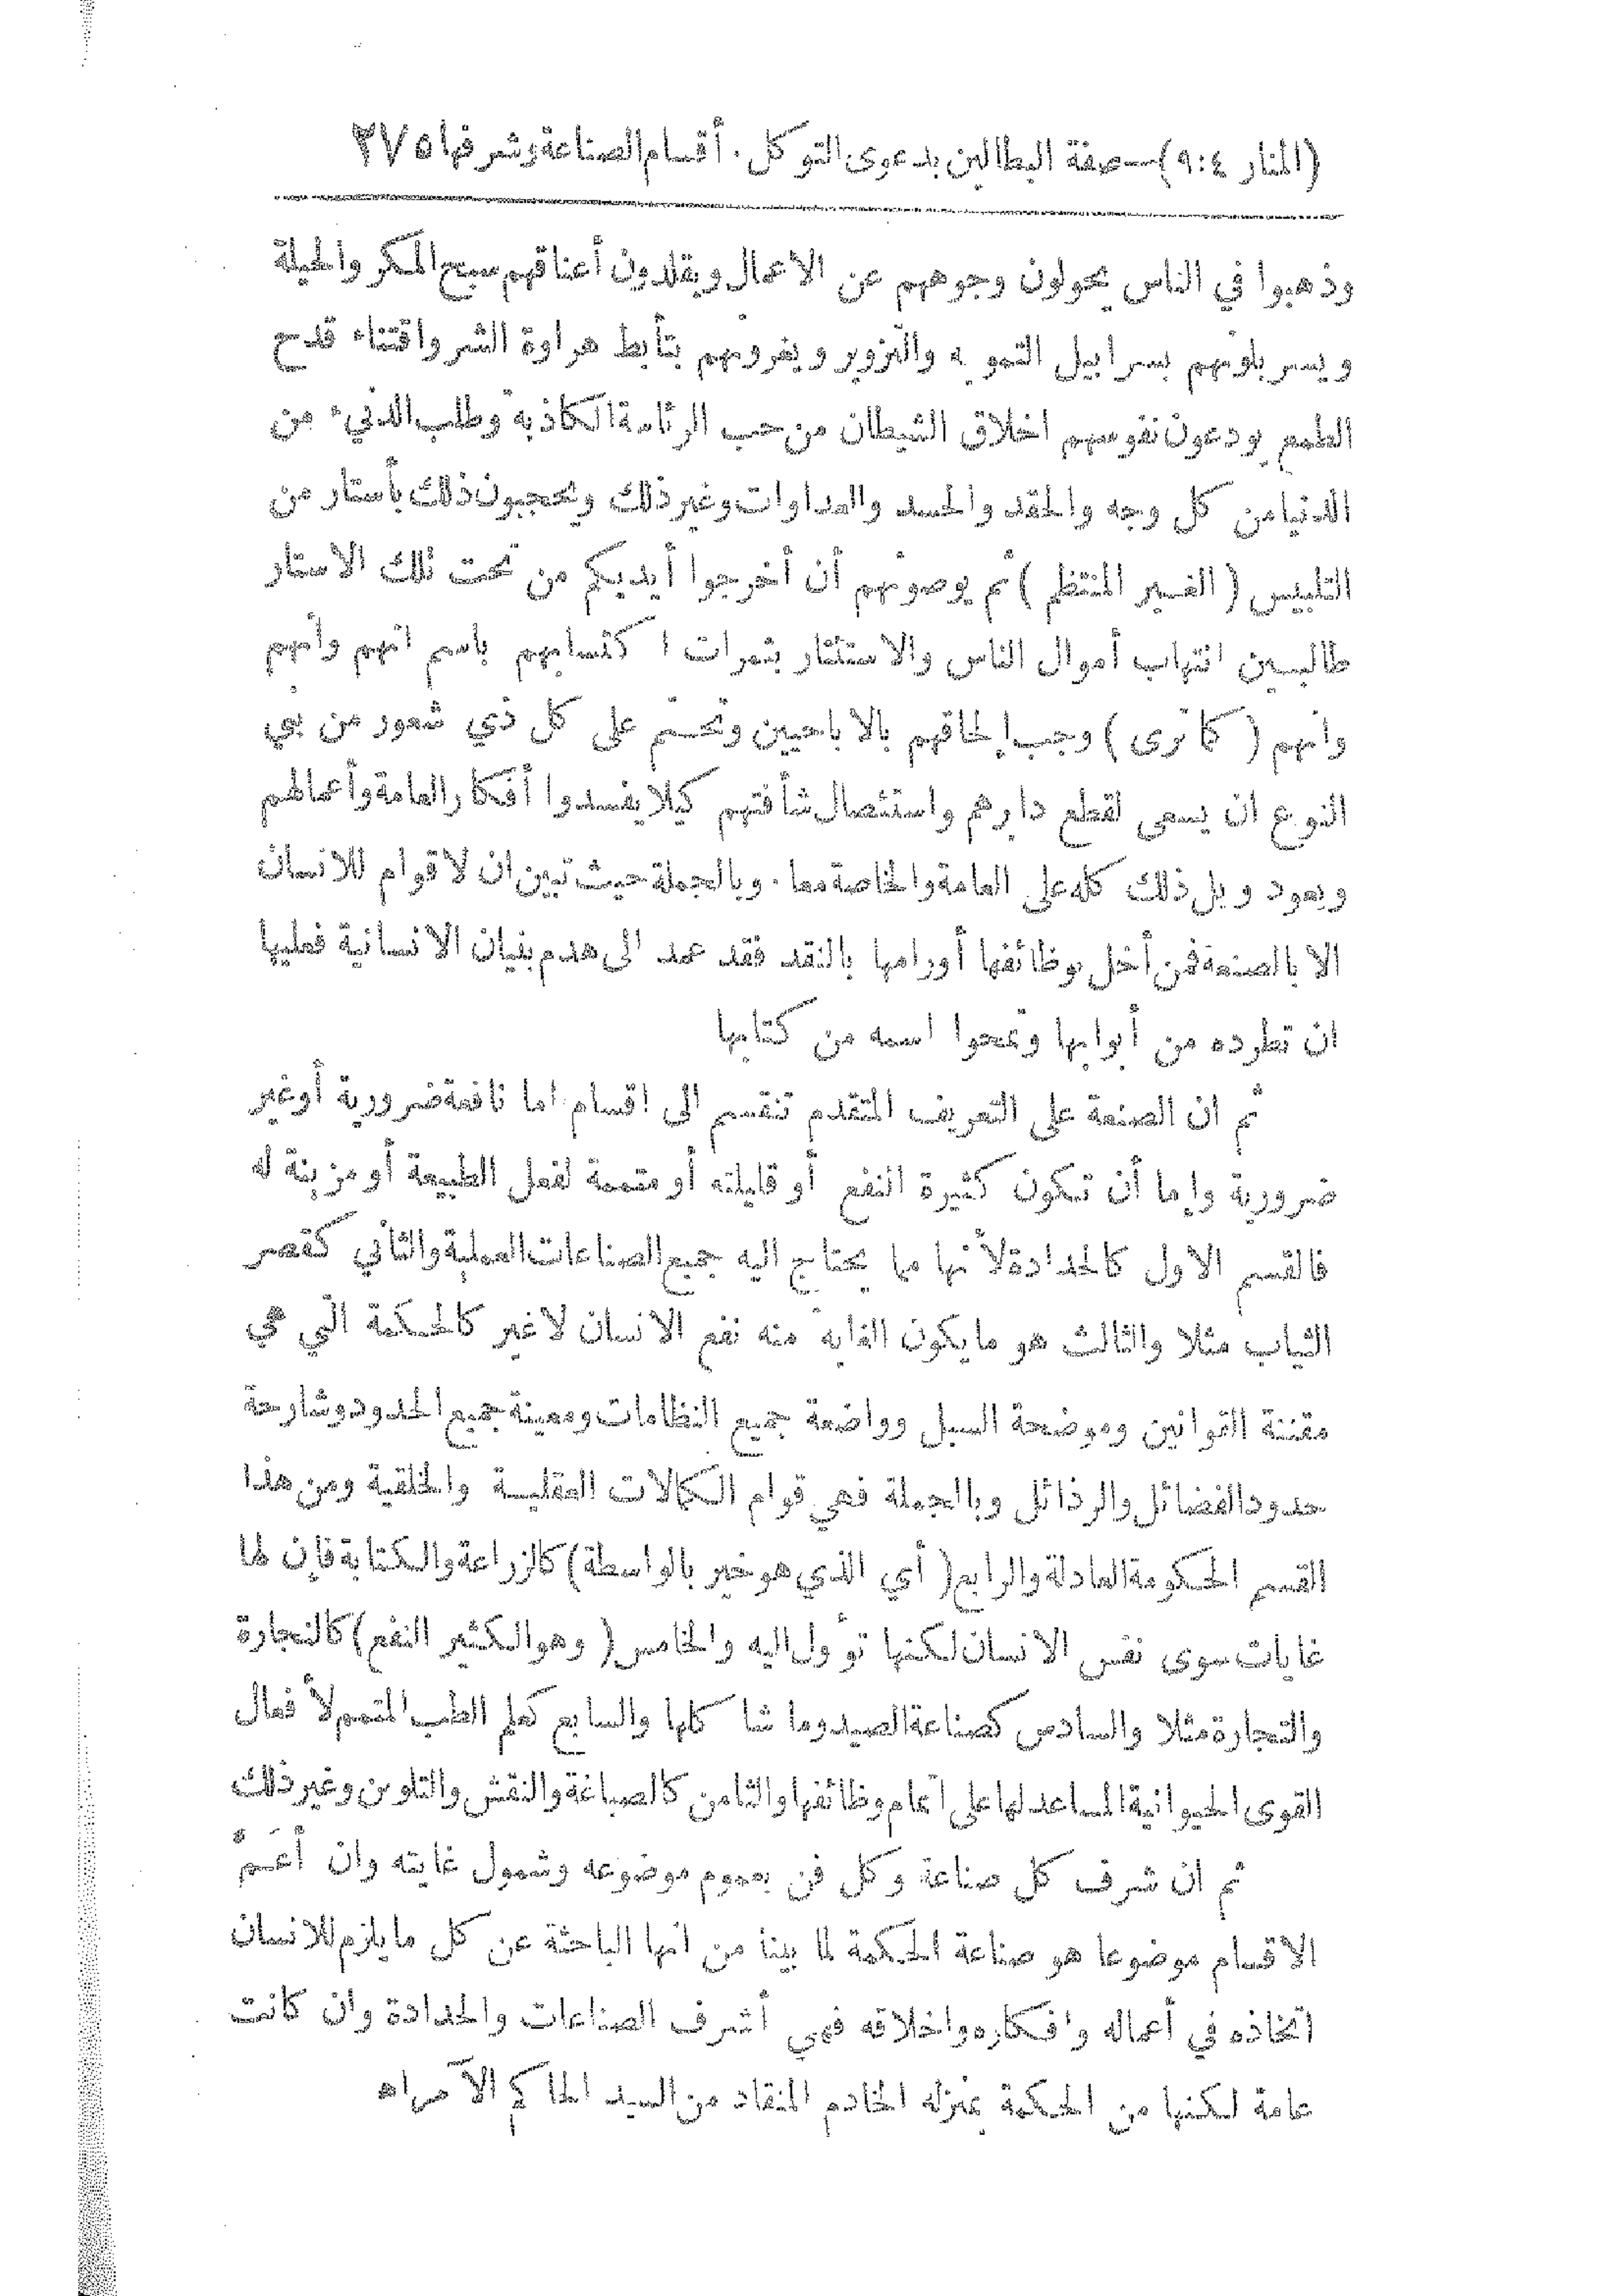 (المنار ٩:٤)—صفة البطالين بدعوى التوكل . أقسام الصناعة وشرفها ٢٧٥
وذهبوا في الناس يحولون وجوههم عن الاعمال ويقلدون أعناقهم سبح المكر والحيلة
ويسربلونهم بسرابيل التمويه والتزوير ويغرونهم بتأبط هراوة الشر واقتناء قدح
الطمع يودعون نفوسهم اخلاق الشيطان من حب الرئاسة الكاذبة وطلب الدنيء من
الدنيا من كل وجه والحقد والحسد والعداوات وغير ذلك ويحجبون ذلك بأستار من
التلبيس ( الغير المنتظم ) ثم يوصونهم أن أخرجوا أيديكم من تحت تلك الاستار
طالبين انتهاب أموال الناس والاستئثار بثمرات اكتسابهم باسم انهم وانهم
وانهم ( كما ترى ) وجب إلحاقهم بالاباحيين وتحتم على كل ذي شعور من بني
النوع ان يسعى لقطع دابرهم واستئصال شأفتهم كيلا يفسدوا أفكار العامة وأعمالهم
ويعود وبل ذلك كله على العامة والخاصة معا . وبالجملة حيث تبين ان لا قوام للانسان
الا بالصنعة فمن أخل بوظائفها أو رامها بالنقد فقد عمد الى هدم بنيان الانسانية فعليها
ان تطرده من أبوابها وتمحوا اسمه من كتابها
ثم ان الصنعة على التعريف المتقدم تنقسم الى اقسام اما نافعة ضرورية أو غير
ضرورية وإما أن تكون كثيرة النفع أو قليلته أو متممة لفعل الطبيعة أو مزينة له
فالقسم الاول كالحدادة لأنها مما يحتاج اليه جميع الصناعات العملية والثاني كقصر
الثياب مثلا والثالث هو ما يكون الغاية منه نفع الانسان لا غير كالحكمة التي هي
مقننة القوانين وموضحة السبل وواضعة جميع النظامات ومعينة جميع الحدود وشارحة
حدود الفضائل والرذائل وبالجملة فهي قوام الكمالات العقلية والخلقية ومن هذا
القسم الحكومة العادلة والرابع ( أي الذي هو خير بالواسطة ) كالزراعة والكتابة فإن لها
غايات سوى نفس الانسان لكنها تؤول اليه والخامس ( وهو الكثير النفع ) كالنجارة
والتجارة مثلا والسادس كصناعة الصيد وما شاكلها والسابع كعلم الطب المتمم لأفعال
القوى الحيوانية المساعد لها على اتمام وظائفها والثامن كالصباغة والنقش والتلوين وغير ذلك
ثم ان شرف كل صناعة وكل فن بعموم موضوعه وشمول غايته وان أعمّ
الاقسام موضوعا هو صناعة الحكمة لما بينا من انها الباحثة عن كل ما يلزم للانسان
اتخاذه في أعماله وافكاره واخلاقه فهي أشرف الصناعات والحدادة وان كانت
عامة لكنها من الحكمة بمنزلة الخادم المنقاد من السيد الحاكم الآمر اه